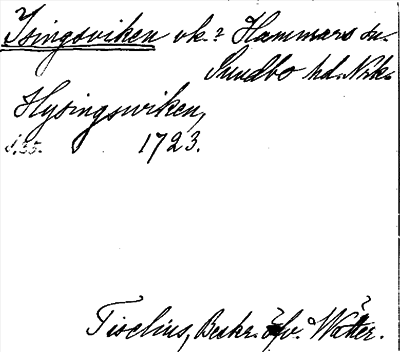 Isingsviken vk.? Hammars sn.
Sundbo hd. Nrk.
Hysingswiken,
s. 55. 1723.
Tiselius, Beskr. öfv. Wätter.